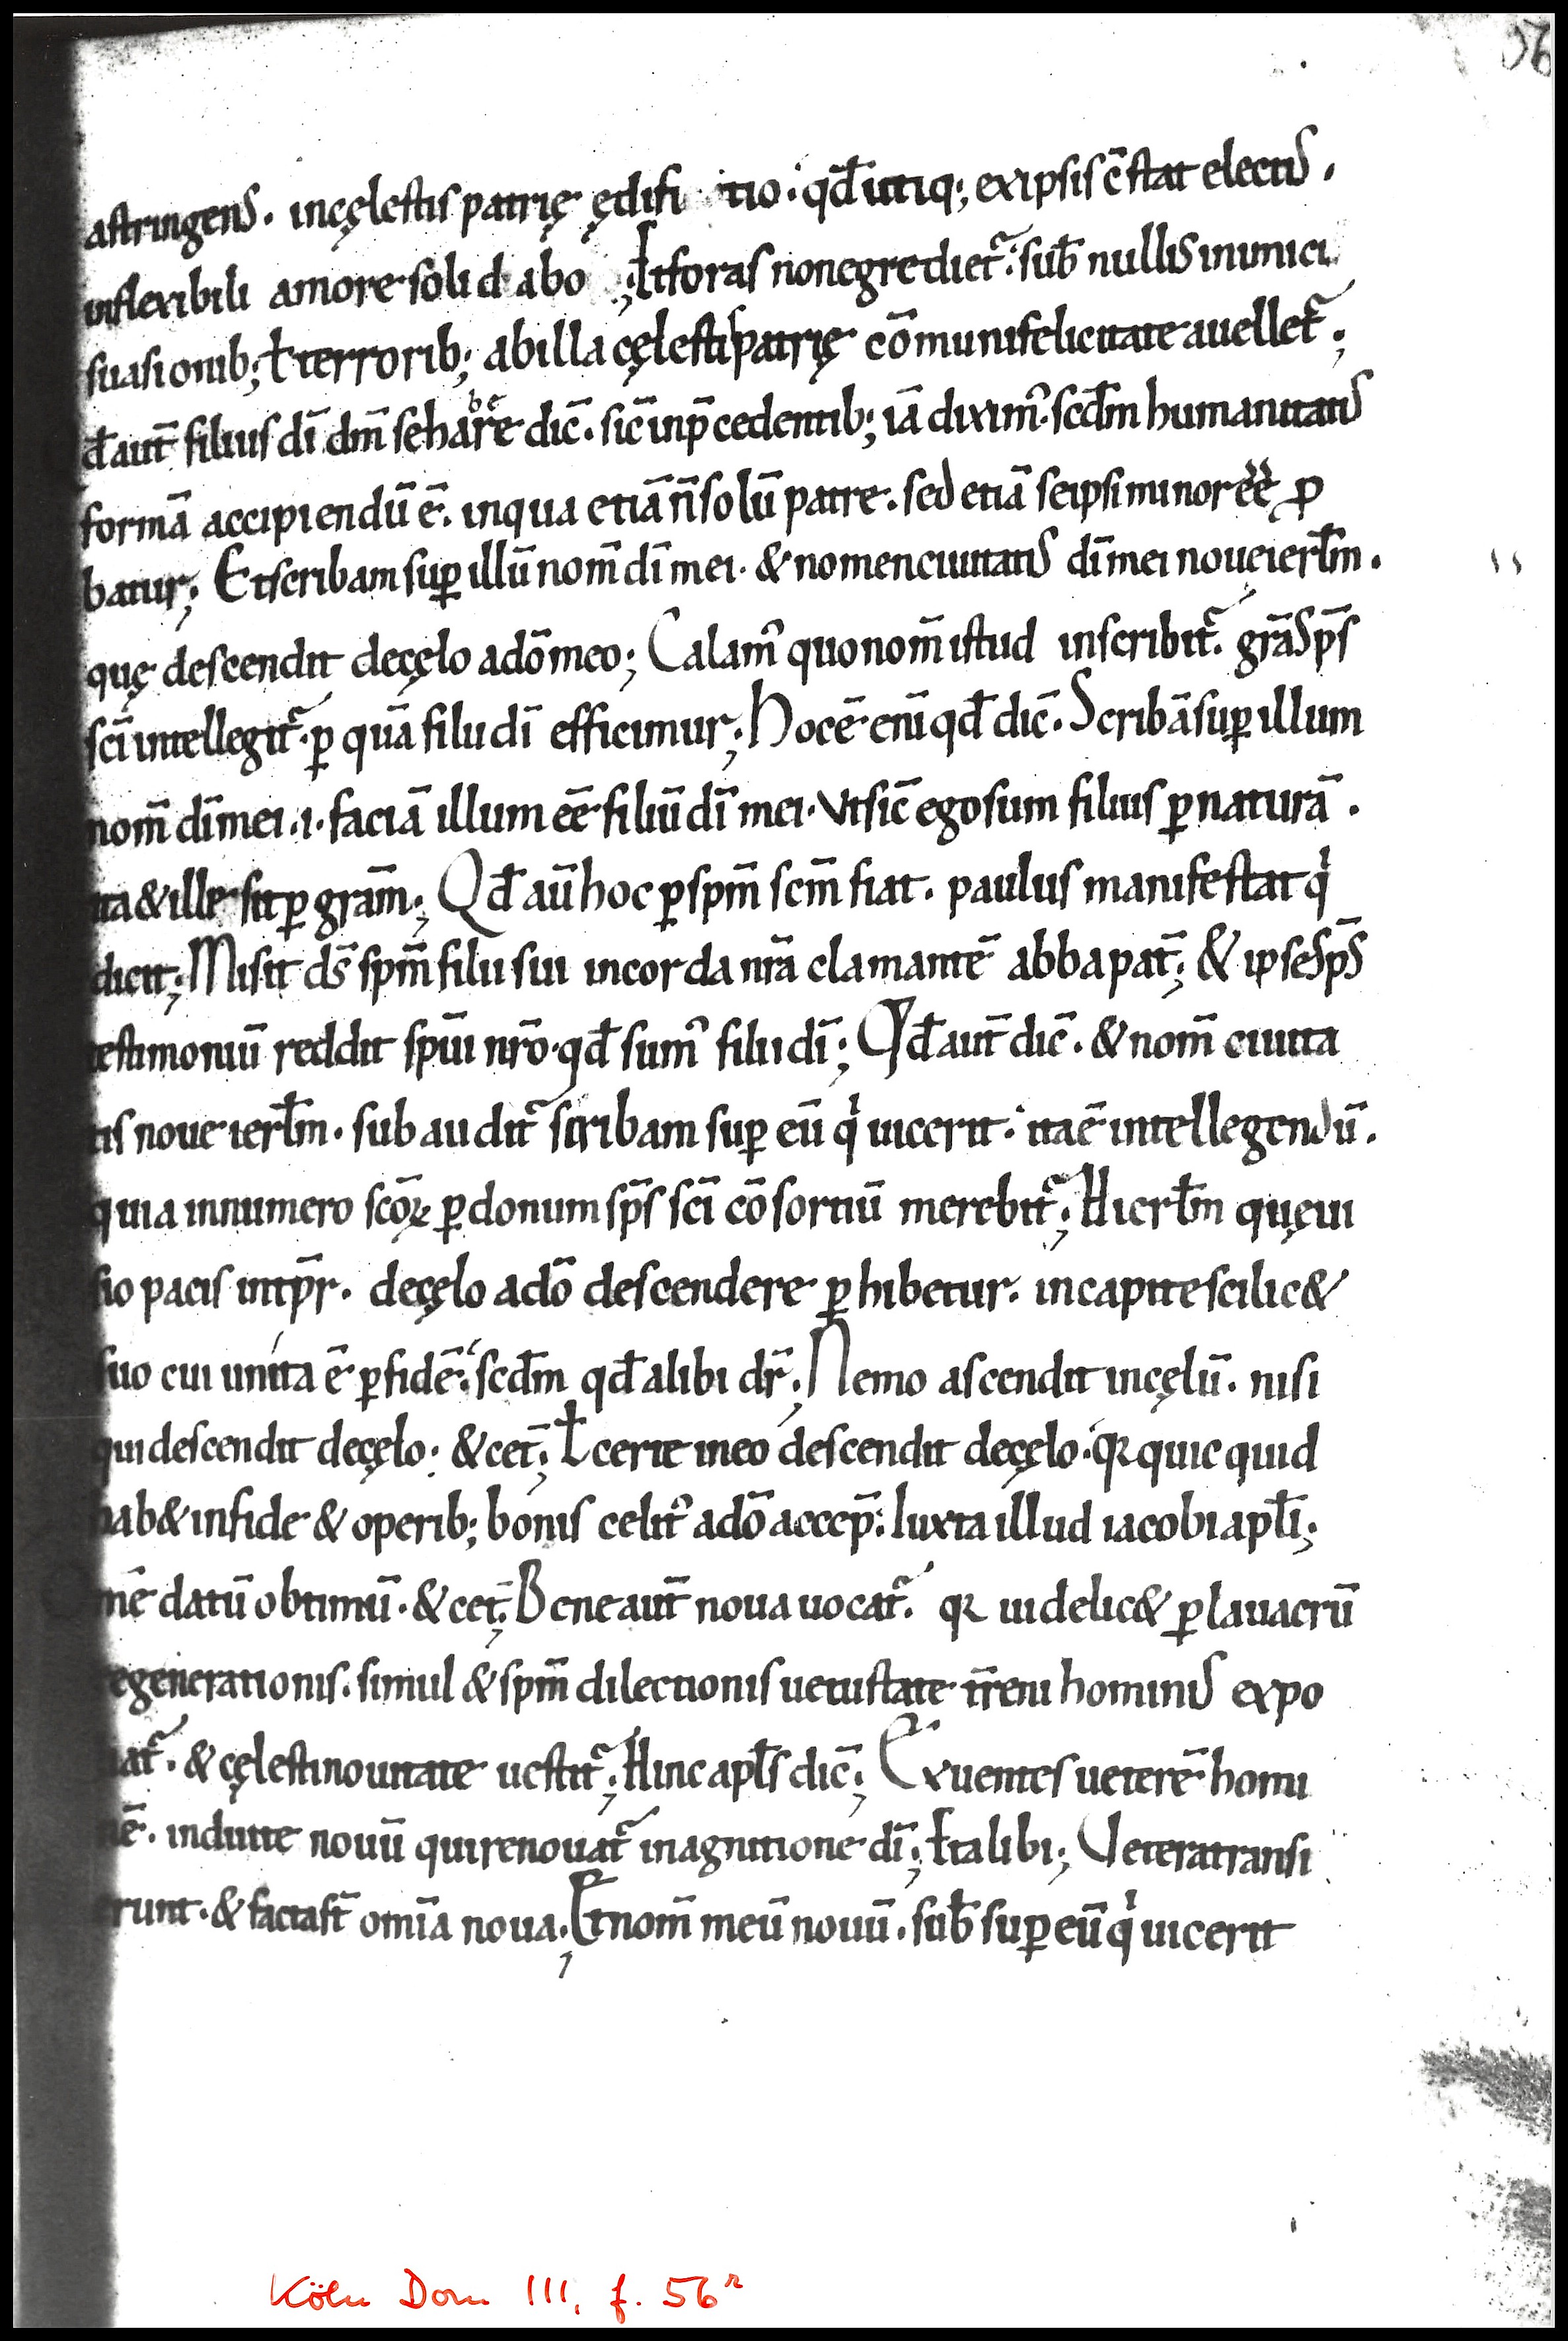 56
astringens. incęlestis patrię ędifi tio. qđ utiq; exipsis c̄stat electis.
inflexibili amore solid abo ; Et foras nonegrediet̃. sub̄ nullis inimici
suasionib; ł terrorib; abilla cęlestis patrię cōmuni felicitate auellet̃;
đ aut̄ filius dī dm̄ se habere dic̄. sic̄ inp̄cedentib; iā diximꝰ. scđm humanitatis
formā accipiendū ē. inqua etiā n̄ solū patre. sed etiā seipsi minor ēē ꝓ
batur; Et scribam suꝑ illū nom̄ dī mei. & nomen ciuitatis dī mei nouę ierłm.
quę descendit decęlo adō meo; Calamꝰ quo nom̄ istud inscribit̃. grā sp̄s
sc̄i intellegit̃. ꝑ quā filii dī efficimur; Hoc ē eni̅ qđ dic̄. Scribā suꝑ illum
nom̄ dī mei. .i. faciā illum ēē filiū dī mei. Vt sic̄ ego sum filius ꝑ naturā.
ita & ille sit ꝑ gram̄; Qđ aū hoc ꝑ spm̄ scm̄ fiat. paulus manifestat qi
dicit; Misit ds̄ spm̄ filii sui incorda nrā clamantē abba pat̄; & ipse sp̄s
testimoniū reddit spūi nrō. qđ sumꝰ filii dī; Qđ aut̄ dic̄. & nom̄ ciuita
tis noue ierłm. subaudit̃ scribam suꝑ eū qi uicerit. ita ē intellegendū.
quia innumero scōꝝ ꝑ donum sp̄s sc̄i cōsortiū merebit̃; Hierłm quę ui
sio pacis intp̄r. decęlo adō descendere ꝑhibetur. incapite scilic&
suo cui unita ē ꝑ fidē. scđm qđ alibi dr̄; Nemo ascendit incęlū. nisi
qui descendit decęlo. & cet̄; ł certe ineo descendit decęlo. qꝛ quicquid
hab& infide & operib; bonis celitꝰ adō accep̄. Iuxta illud iacobi apłi;
mē datū obtimū. & cet̄; Bene aut̄ noua uocat̃. qꝛ uidelic& ꝑ lauacrū
regenerationis. simul & spm̄ dilectionis uetustate tr̄eni hominis expo
liat̃. & cęlesti nouitate uestit̃; Hinc apłs dic̄; Exuentes ueterē homi
nē. induite nouū qui renouat̃ inagnitione dī; Et alibi; Vetera transi
erunt. & facta st̄ omīa noua; Et nom̄ meū nouū. sub̄ suꝑ eū qi uicerit
Köln Dom III, f. 56r